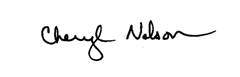 Cheryl Nelson